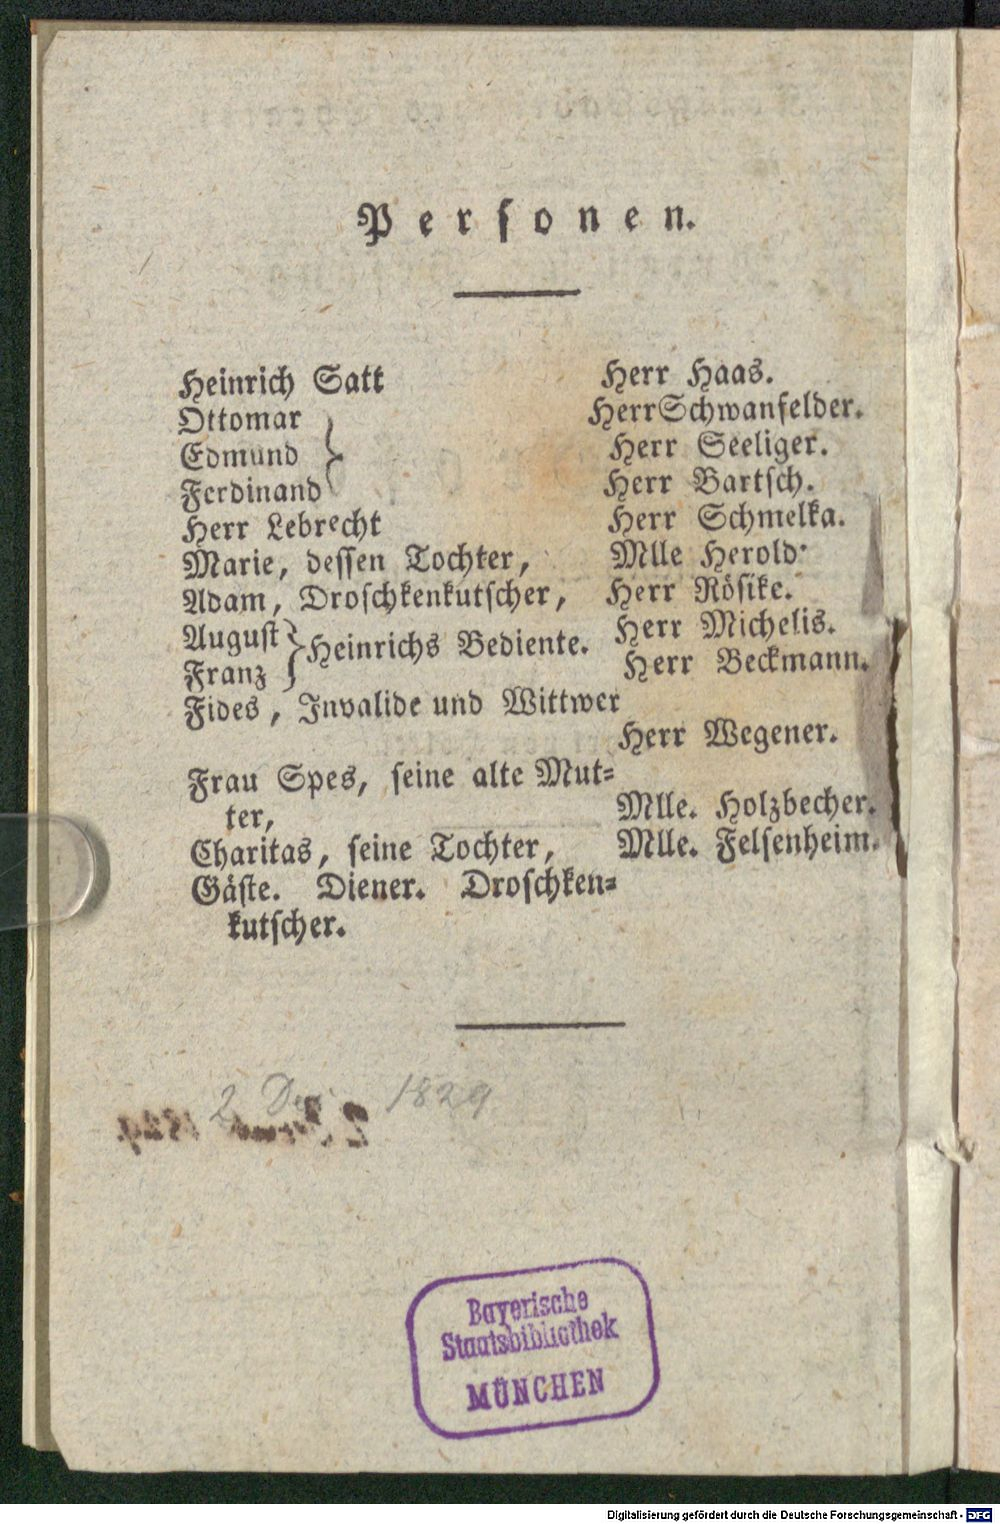 Personen.
Heinrich Satt Herr Haas.
Ottomar Herr Schwanfelder.
Edmund Herr Seeliger.
Ferdinand Herr Bartsch.
Herr Lebrecht Herr Schmelka.
Marie, dessen Tochter, Mlle Herold.
Adam, Droschkenkutscher, Herr Rösike.
August } Heinrichs Bediente. Herr Michelis.
Franz Herr Beckmann.
Fides, Invalide und Wittwer
Herr Wegener.
Frau Spes, seine alte Mut-
ter, Mlle. Holzbecher.
Charitas, seine Tochter, Mlle. Felsenheim.
Gäste. Diener. Droschken-
kutscher.
2 1829
Bayerische
Staatsbibliothek
MÜNCHEN
Digitalisierung gefördert durch die Deutsche Forschungsgemeinschaft - DFG